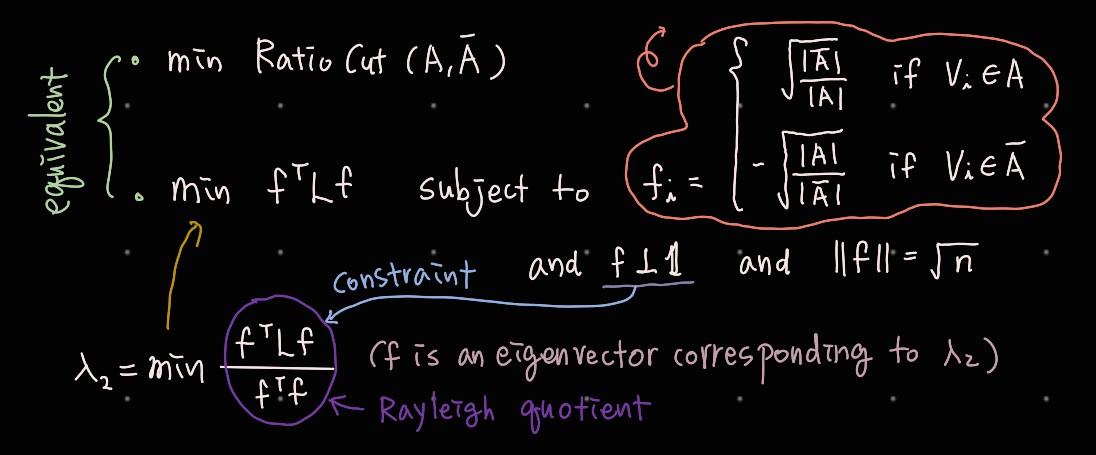 equivalent
• min Ratio Cut (A, Ā)
• min fᵀLf subject to fᵢ = { √(|Ā|/|A|) if Vᵢ ∈ A
-√(|A|/|Ā|) if Vᵢ ∈ Ā
constraint and f ⊥ 𝟙 and ‖f‖ = √n
λ₂ = min fᵀLf / fᵀf (f is an eigenvector corresponding to λ₂)
Rayleigh quotient